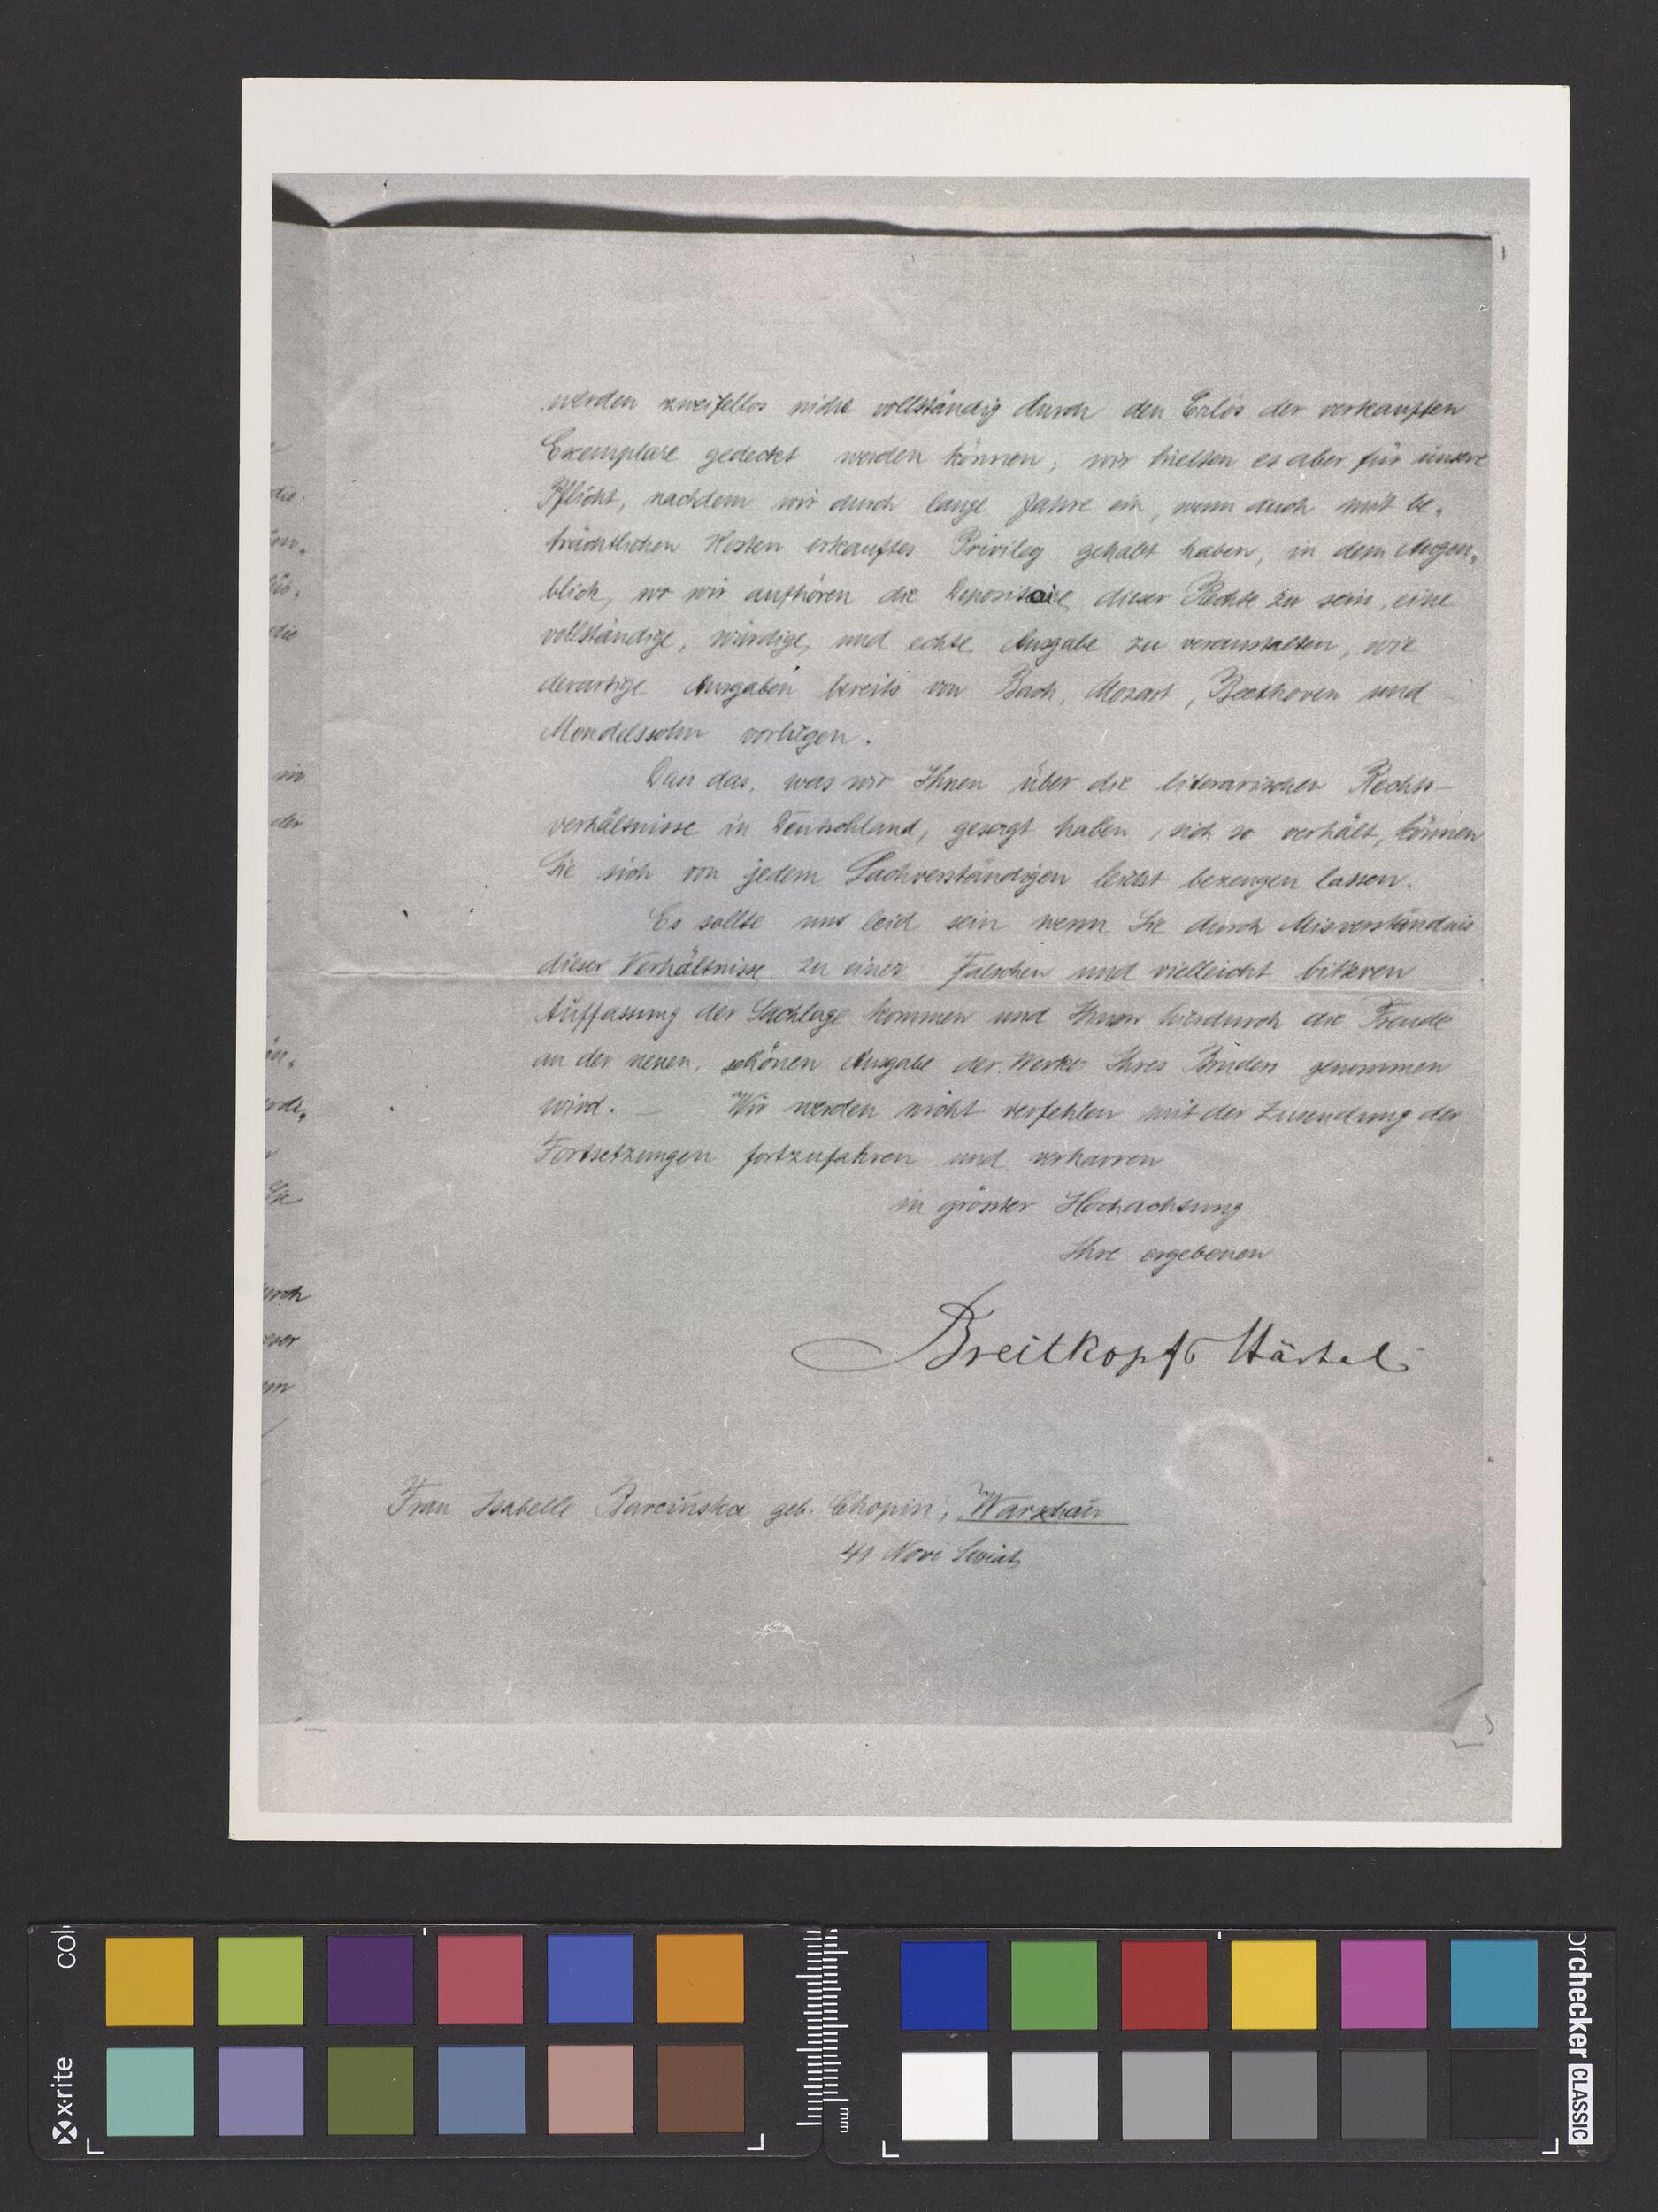 werden zweifellos nicht vollständig durch den Erlös der verkauften
Exemplare gedecket werden können; wir hielten es aber für unsere
Pflicht, nachdem wir durch lange Jahre ein, wenn auch mit be-
trächtlichen Kosten erkauftes Privileg gehabt haben, in dem Augen-
blick, wo wir aufhören die Depositaire dieser Rechte zu sein, eine
vollständige, würdige, und echte Ausgabe zu veranstalten, wie
derartige Ausgaben bereits von Bach, Mozart, Beethoven und
Mendelssohn vorliegen.
Dass das, was wir Ihnen über die literarischen Rechts-
verhältnisse in Deutschland, gesagt haben, sich so verhält, können
Sie sich von jedem Sachverständigen leicht bezeugen lassen.
Es sollte uns leid sein wenn Sie durch Misverständnis
dieser Verhältnisse zu einer Falschen und vielleicht bitteren
Auffassung der Sachlage kommen und Ihnen hierdurch die Freude
an der neuen, schönen Ausgabe der Werke Ihres Bruders genommen
wird. — Wir werden nicht verfehlen mit der Zusendung der
Fortsetzungen fortzufahren und verharren
in grösster Hochachtung
Ihre ergebenen
Breitkopf & Härtel
Frau Isabelle Barcińska geb. Chopin, Warschau
41 Novi Swiat
die
die
in
der
Sie
x-rite
col
mm
orchecker CLASSIC